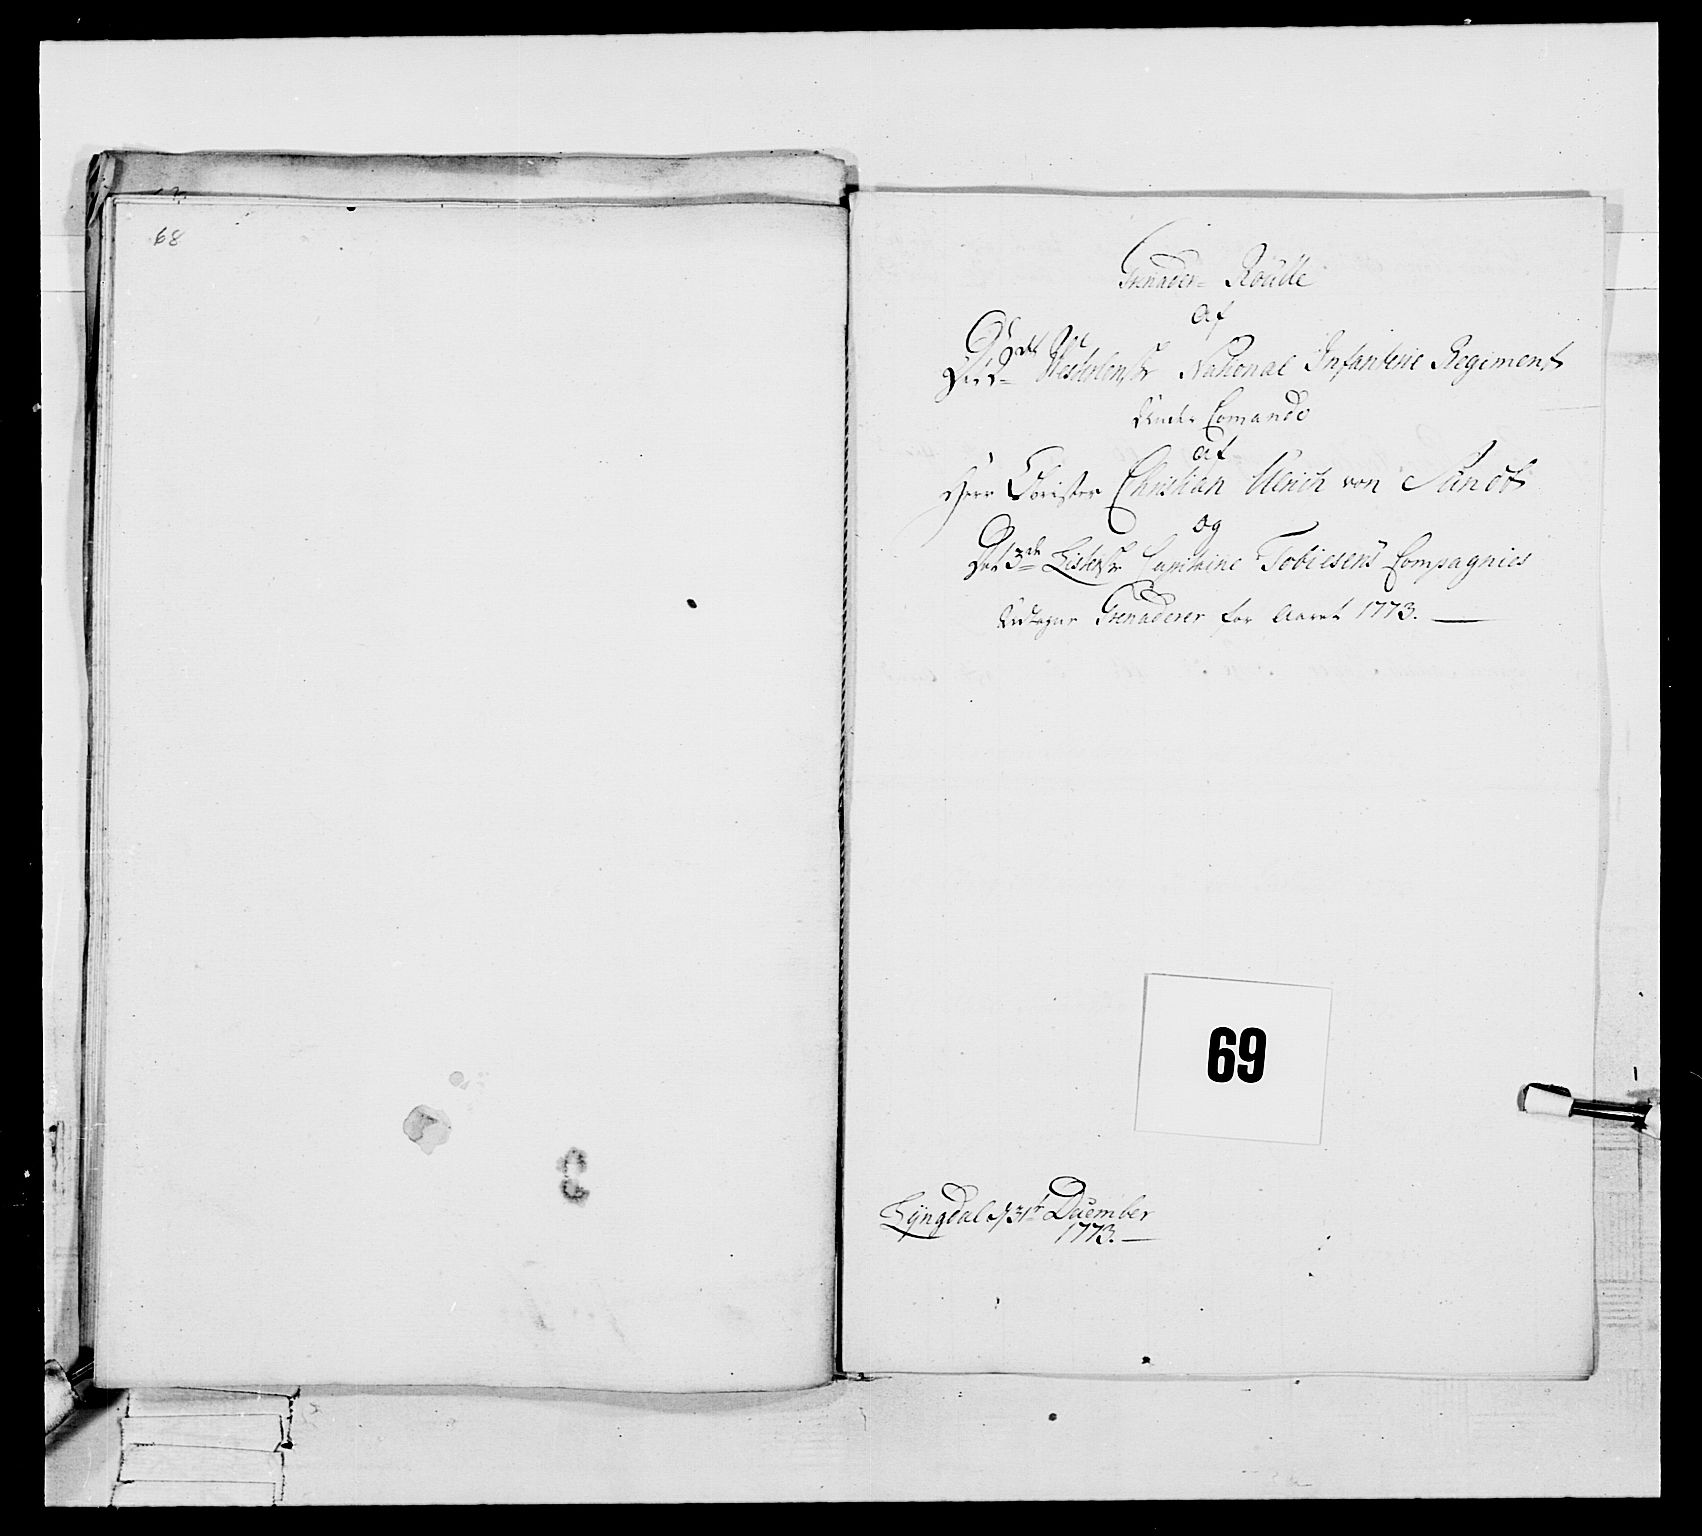 68
Grenader= Roulle
af
Det 2det Westerlenske National Infanterie Regiment
Under Comando
af
Herr Obrister Christian Ulrich von Sundt
og
Det 3de Listerske Capitaine Tobiesens Compagnies
Grenaderer for Aaret 1773.
69
Lyngdal d 31te December
1773.